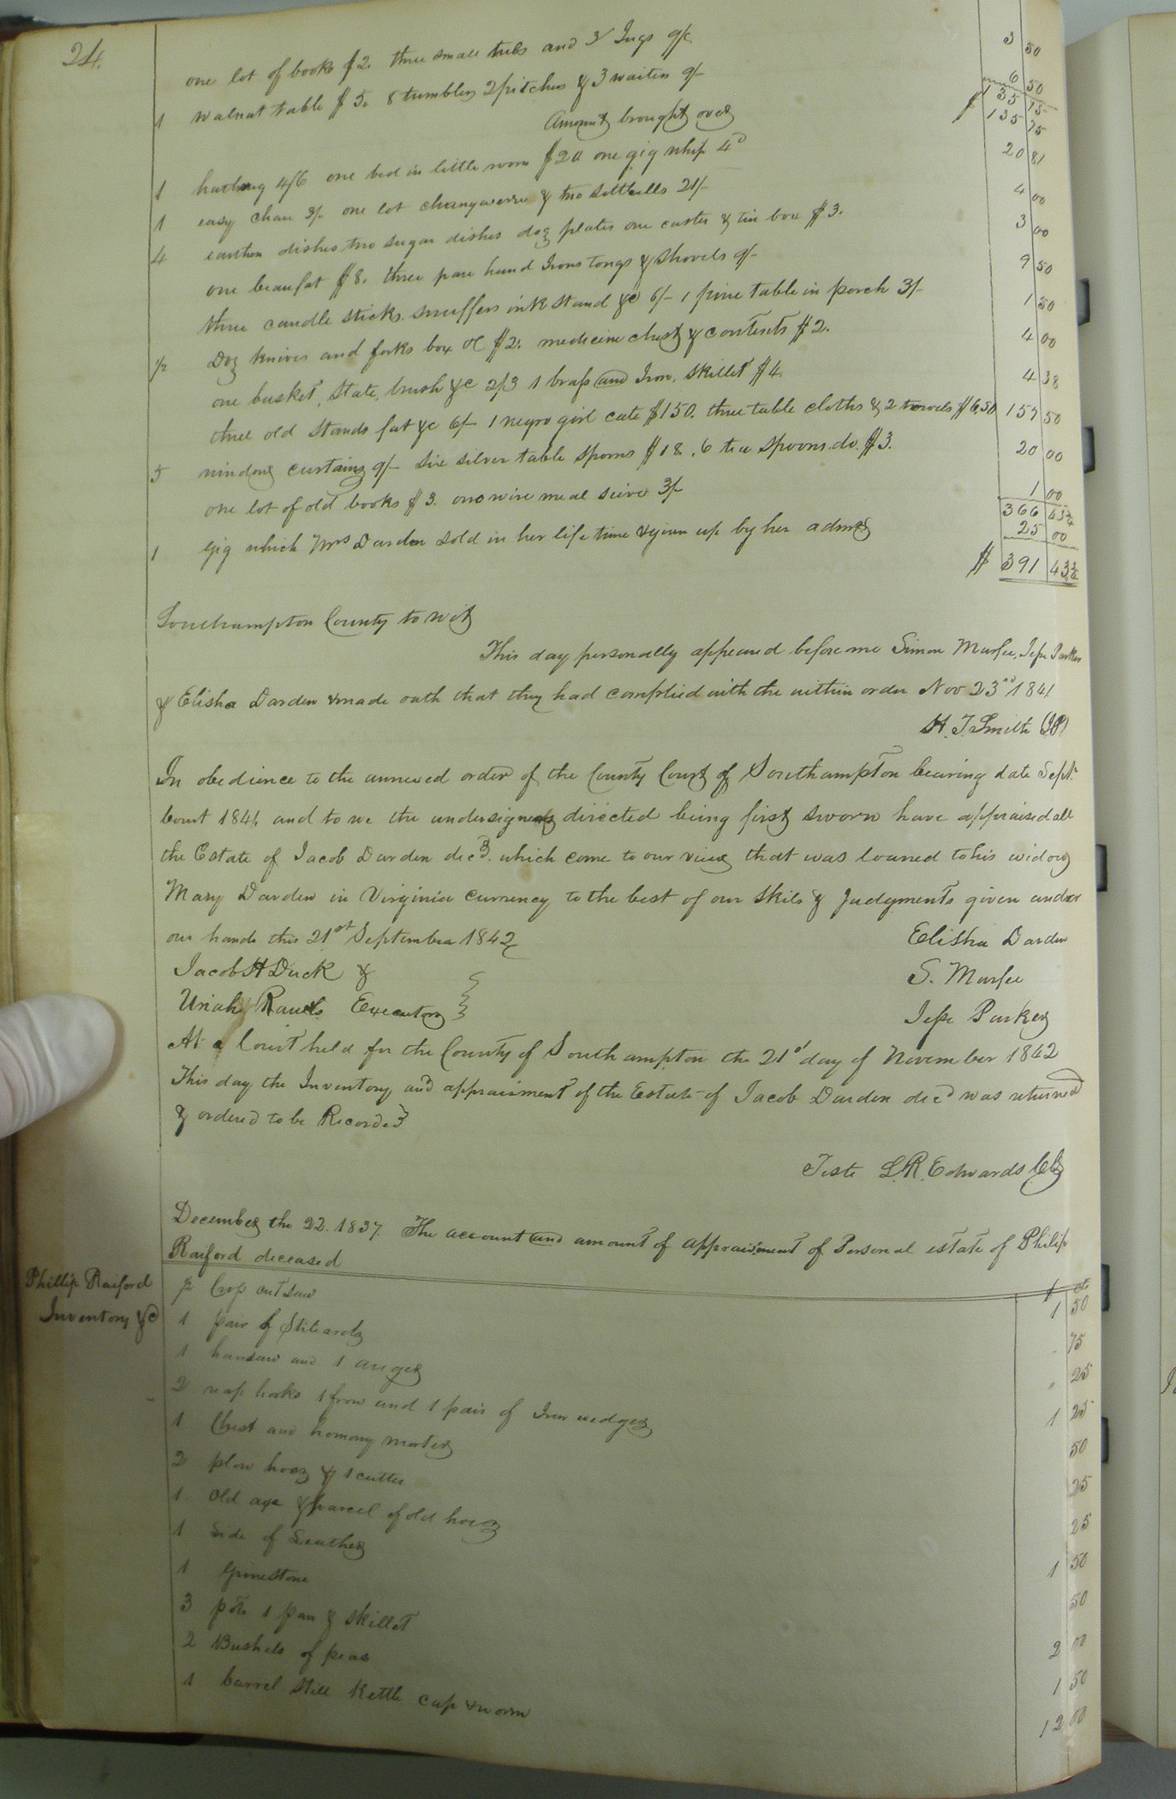 24.
one lot of books $2. three small tubs and 3 Jugs 9/ 3 50
1 walnut table $5. 8 tumblers 2 pitchers & 3 waiters 9/- 6 50
$ 135 75
Amount brought over 135 75
1 4/6 one bed in little room $20 one gig whip 4d 20 81
1 easy chair 3/- one lot & two 21/- 4 00
4 earthen dishes two sugar dishes doz plates one caster & tin box $3. 3 00
one beaufat $8. three pare hand Irons tongs & shovels 9/- 9 50
three candle sticks snuffers ink stand &c 6/- 1 pine table in porch 3/- 1 50
1/2 Doz knives and forks box &c $2. medicine chest & contents $2. 4 00
one basket, slate, brush &c 2/3 1 brass and Iron. skillet $4 4 38
three old stands fat &c 6/- 1 negro girl cate $150. three table cloths & 2 towels $6.50 157 50
5 window curtains 9/- six silver table spoons $18. 6 tea spoons do. $3. 20 00
one lot of old books $3. one wire meal sieve 3/- 1 00
366 43 1/2
1 Gig which Mrs Darden sold in her life time & given up by her admr 25 00
$ 391 43 1/2
Southampton County to wit
This day personally appeared before me Simon Murfee, Jesse Parker
& Elisha Darden & made oath that they had complied with the within order Nov 23rd 1841
H. T. Smith JP
In obedience to the annexed order of the County Court of Southampton bearing date Sept.
Court 1841, and to we the undersigned directed being first sworn have appraised all
the Estate of Jacob Darden decd. which come to our view that was loaned to his widow
Mary Darden in Virginia currency to the best of our skils & Judgments given under
our hands this 21st September 1842 Elisha Darden
Jacob H Duck & S. Murfee
Uriah Rawls Executors Jesse Parker
At a Court held for the County of Southampton the 21st day of November 1842
This day the Inventory and appraisment of the Estate of Jacob Darden decd was returned
& ordered to be Recorded
Teste L. R. Edwards Clk
December the 22. 1837. The account and amount of appraisment of Personal estate of Philip
Raiford deceased
Phillip Raiford
Inventory &c
$ cts
1 Crop cut saw 1 50
1 pair of Stiliards 75
1 hansaw and 1 auger 25
2 reap hooks 1 frow and 1 pair of Iron wedges 1 25
1 Chest and homony morter 50
2 plow hoes & 1 cutter 25
1 old axe & parcel of old hoes 25
1 side of Leather 1 50
1 Grinestone 50
3 pots 1 pan & skillet 2 00
2 Bushels of peas 1 50
1 barrel still Kettle cap & worm 12 00